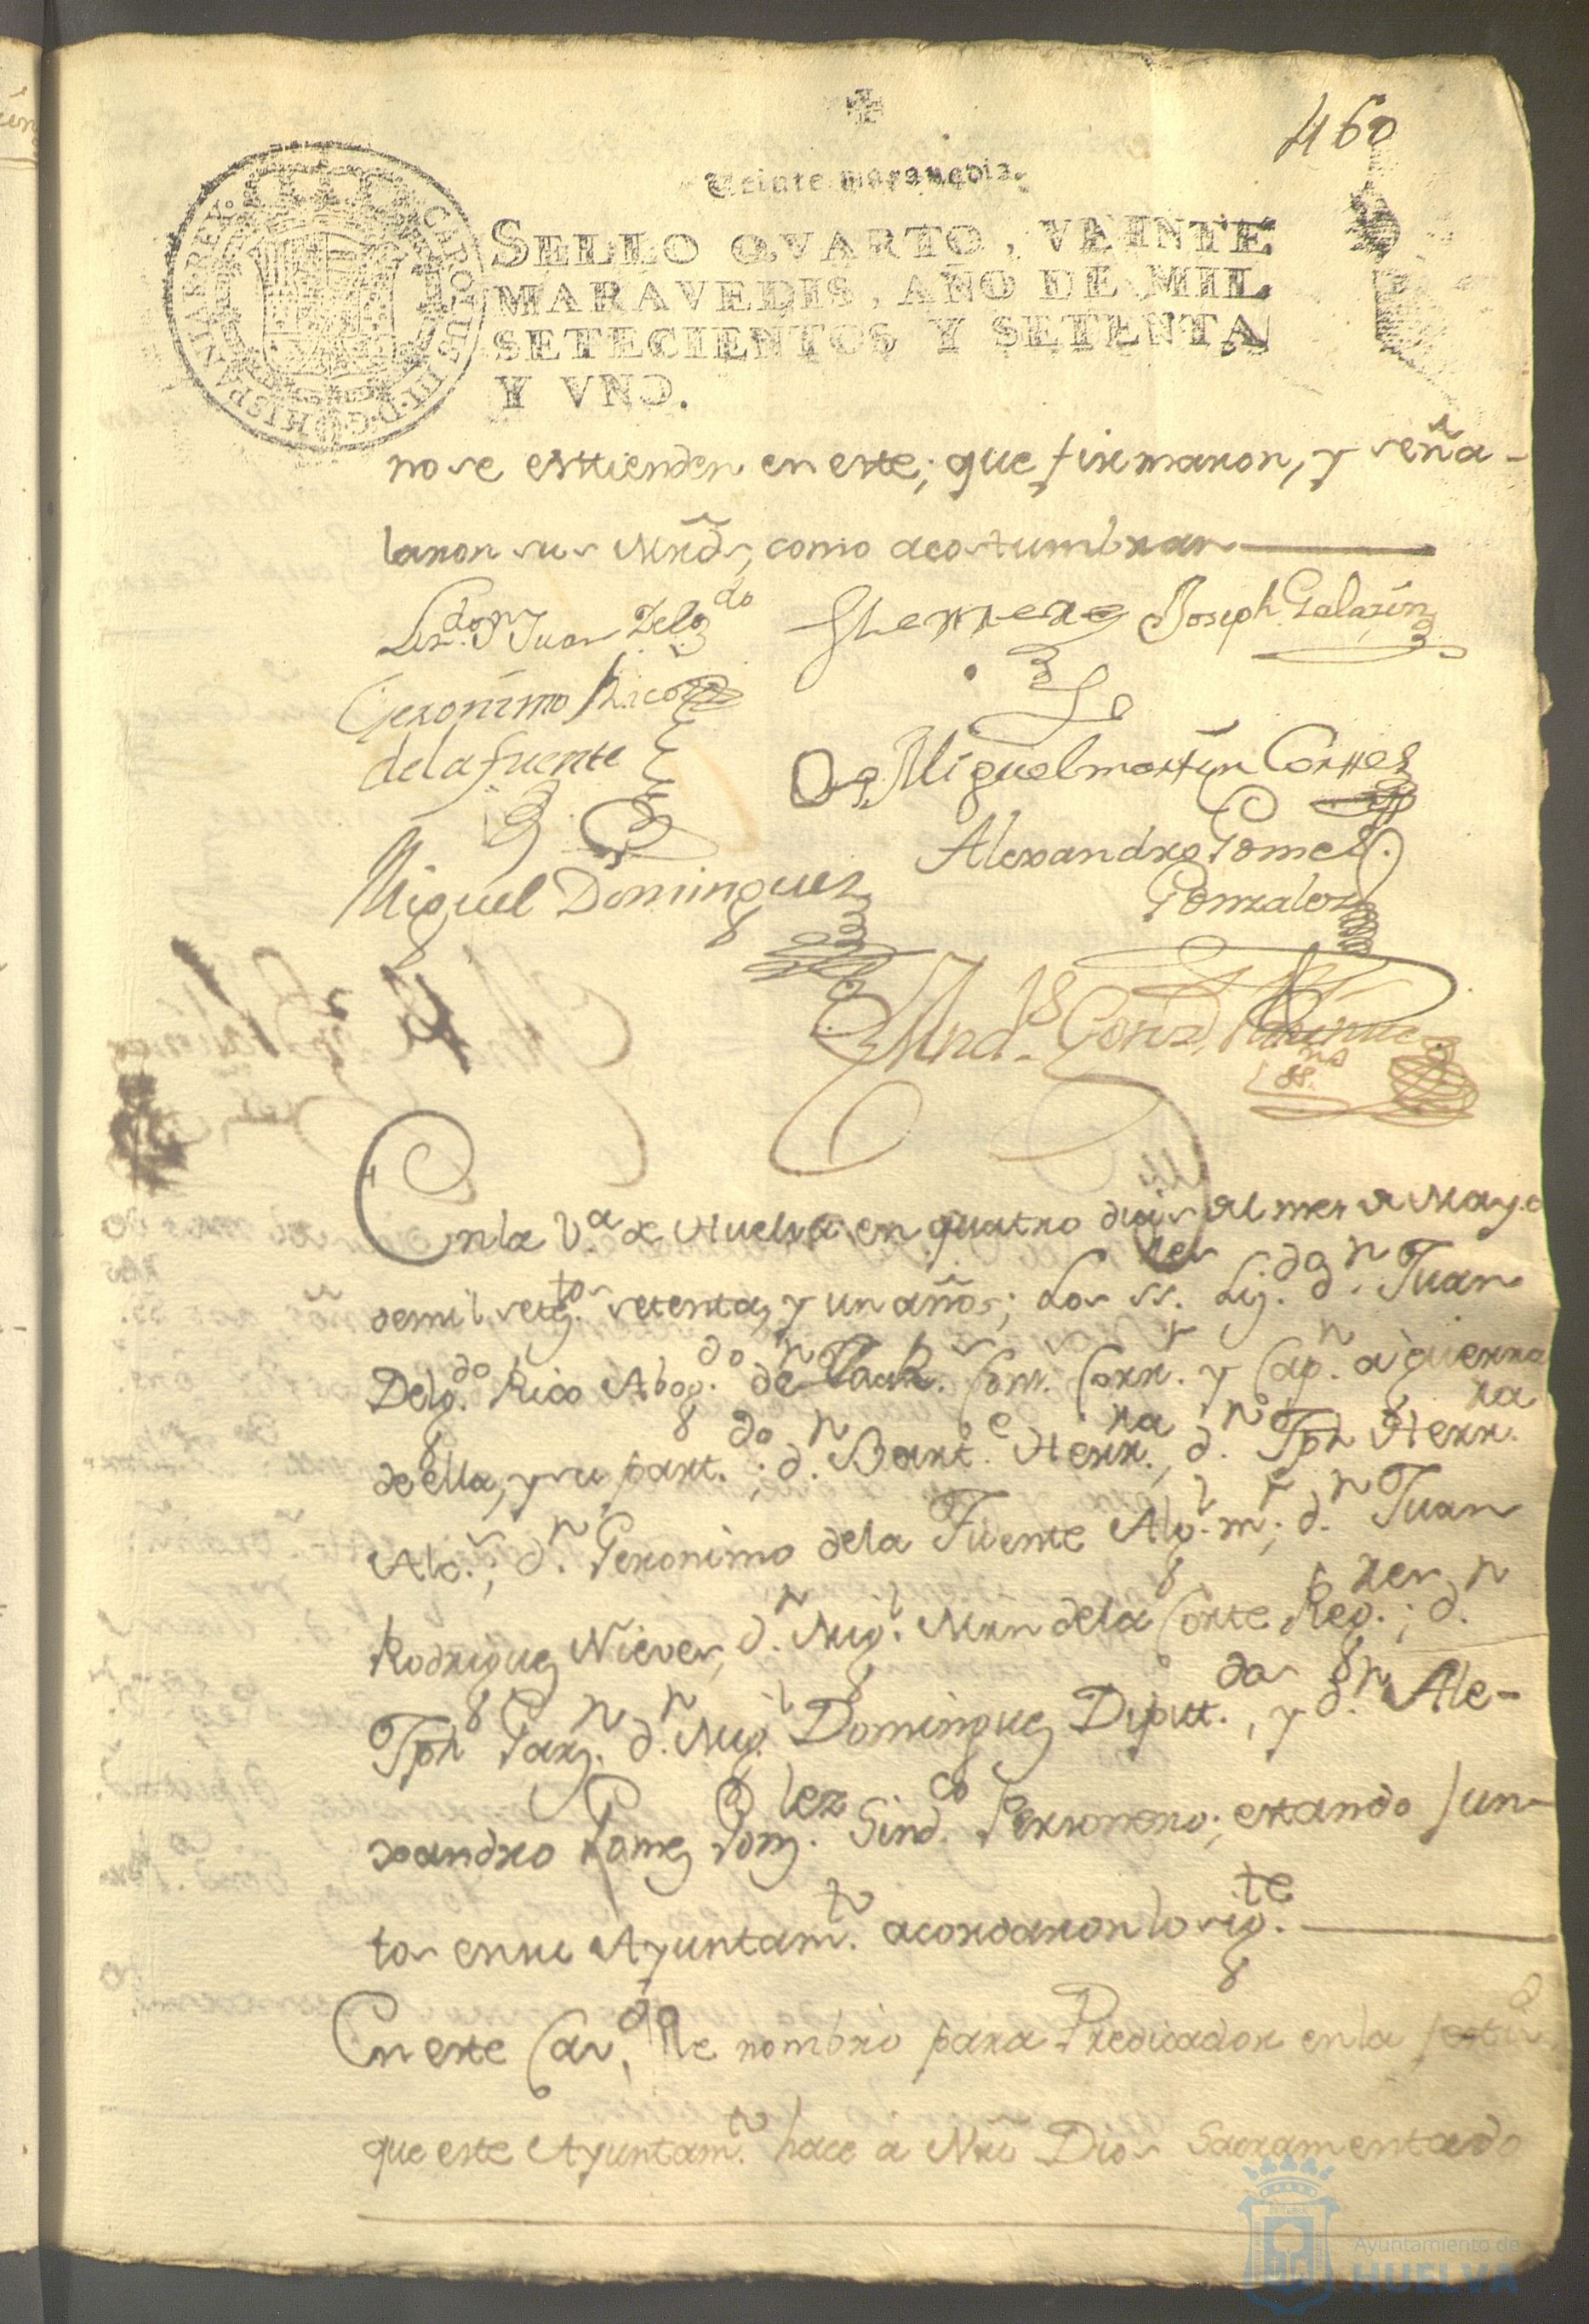 460
Veinte maravedis.
SELLO QVARTO, VEINTE
MARAVEDIS, AÑO DE MIL
SETECIENTOS Y SETENTA
Y VNO.
CAROLUS III D.G. HISPANIAR. REX.
no se esttienden en este; que firmaron, y seña-
laron sus Mrds, como acostumbran
Lizdo. Dn Juan Delgdo
Herrera
Joseph Galazin
Geronimo Rico
de la fuente
Miguel martin Cortes
Alexandro Gomes
Gonzales
Miguel Domingues
Andrs Gonz.
En la Va. de Huelva en quatro dias del mes de Mayo
de mil setectos. setenta, y un años; Los SSres. Lizdo. Dn. Juan
Delgdo. Rico Abogdo. de los Rs. Con. Corrr. y Capn. a guerra
de ella, y su partdo.; dn. Barte. Herrra., dn. Jph Herrra.
Alc.s; dn. Geronimo de la Fuente Algl. mr; dn. Juan
Rodriguez Nieves, dn. Migl. Mrn de la Corte Regres.; dn.
Jph Garzn. dn. Migl. Dominguez Diputtdos., y dn. Ale-
xandro Gomez Gonzlez Sindco Personero; estando jun-
tos en su Ayuntamto. acordaron lo sigte.
En este Cavdo, se nombró para Predicador en la festivd
que este Ayuntamto. hace a Nrô Dios Sacramentado
Ayuntamiento de
HUELVA